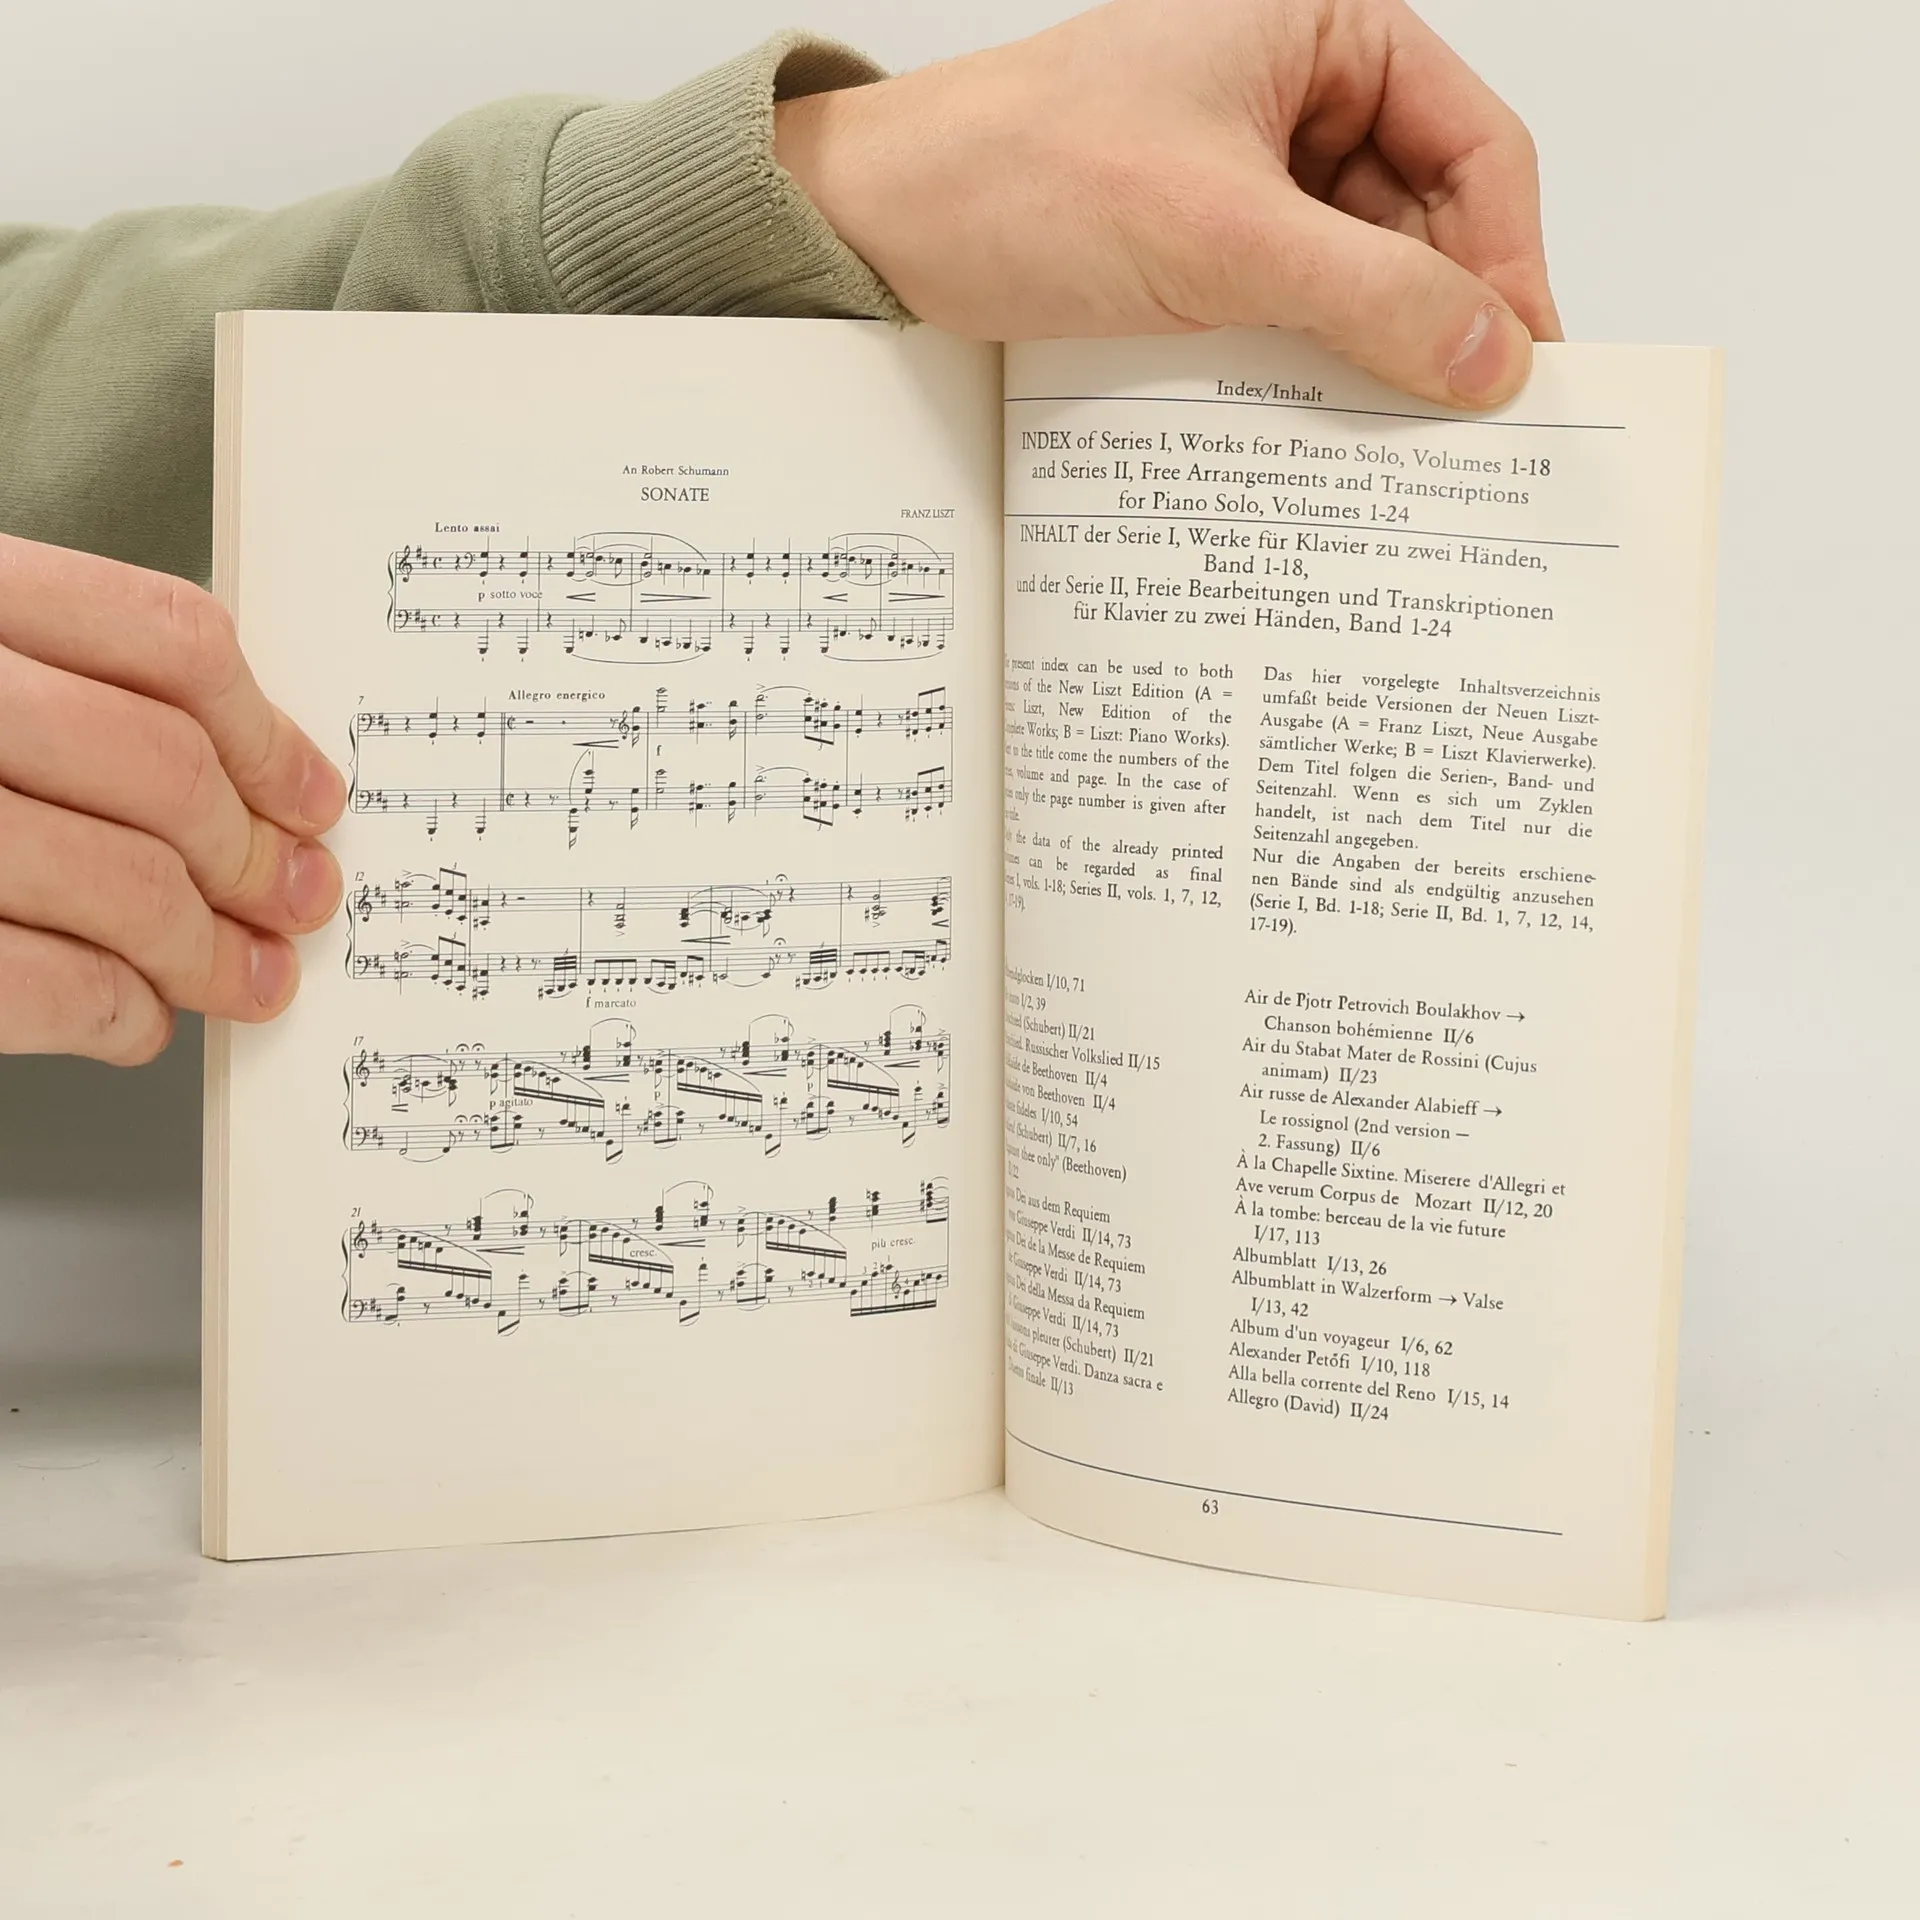 An Robert Schumann
SONATE
FRANZ LISZT
Lento assai
p sotto voce
7
Allegro energico
f
12
f marcato
17
p agitato
p
p
21
cresc.
più cresc.
Index/Inhalt
INDEX of Series I, Works for Piano Solo, Volumes 1-18
and Series II, Free Arrangements and Transcriptions
for Piano Solo, Volumes 1-24
INHALT der Serie I, Werke für Klavier zu zwei Händen,
Band 1-18,
und der Serie II, Freie Bearbeitungen und Transkriptionen
für Klavier zu zwei Händen, Band 1-24
present index can be used to both
of the New Liszt Edition (A =
Liszt, New Edition of the
Works; B = Liszt: Piano Works).
to the title come the numbers of the
volume and page. In the case of
only the page number is given after
the data of the already printed
can be regarded as final
I, vols. 1-18; Series II, vols. 1, 7, 12,
17-19).
Das hier vorgelegte Inhaltsverzeichnis
umfaßt beide Versionen der Neuen Liszt-
Ausgabe (A = Franz Liszt, Neue Ausgabe
sämtlicher Werke; B = Liszt Klavierwerke).
Dem Titel folgen die Serien-, Band- und
Seitenzahl. Wenn es sich um Zyklen
handelt, ist nach dem Titel nur die
Seitenzahl angegeben.
Nur die Angaben der bereits erschiene-
nen Bände sind als endgültig anzusehen
(Serie I, Bd. 1-18; Serie II, Bd. 1, 7, 12, 14,
17-19).
I/10, 71
I/2, 39
(Schubert) II/21
Russischer Volkslied II/15
de Beethoven II/4
von Beethoven II/4
fideles I/10, 54
(Schubert) II/7, 16
thee only" (Beethoven)
Dei aus dem Requiem
Giuseppe Verdi II/14, 73
Dei de la Messe de Requiem
Giuseppe Verdi II/14, 73
Dei della Messa da Requiem
Giuseppe Verdi II/14, 73
pleurer (Schubert) II/21
di Giuseppe Verdi. Danza sacra e
finale II/13
Air de Pjotr Petrovich Boulakhov →
Chanson bohémienne II/6
Air du Stabat Mater de Rossini (Cujus
animam) II/23
Air russe de Alexander Alabieff →
Le rossignol (2nd version —
2. Fassung) II/6
À la Chapelle Sixtine. Miserere d'Allegri et
Ave verum Corpus de Mozart II/12, 20
À la tombe: berceau de la vie future
I/17, 113
Albumblatt I/13, 26
Albumblatt in Walzerform → Valse
I/13, 42
Album d'un voyageur I/6, 62
Alexander Petőfi I/10, 118
Alla bella corrente del Reno I/15, 14
Allegro (David) II/24
63